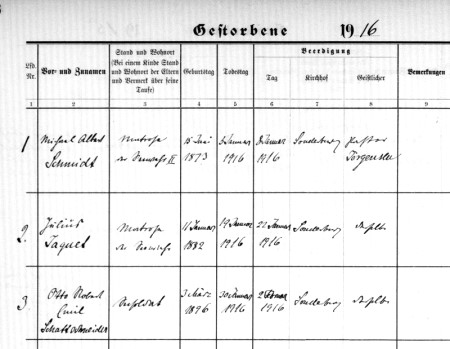 Gestorbene 1916
Lfd. Nr.
Vor- und Zunamen
Stand und Wohnort
(Bei einem Kinde Stand
und Wohnort der Eltern
und Vermerk über seine
Taufe)
Geburtstag
Todestag
Beerdigung
Tag
Kirchhof
Geistlicher
Bemerkungen
1 2 3 4 5 6 7 8 9
1
Michael Albert
Schmidt
Matrose
der Seewehr II
15 Juni
1873
5 Januar
1916
8 Januar
1916
Sonderburg
Pastor
Jörgensen
2.
Julius
Taquet
Matrose
der Seewehr
11 Januar
1882
19 Januar
1916
22 Januar
1916
Sonderburg
derselbe
3.
Otto Robert
Emil
Schattschneider
3 März
1896
30 Januar
1916
2 Februar
1916
Sonderburg
derselbe